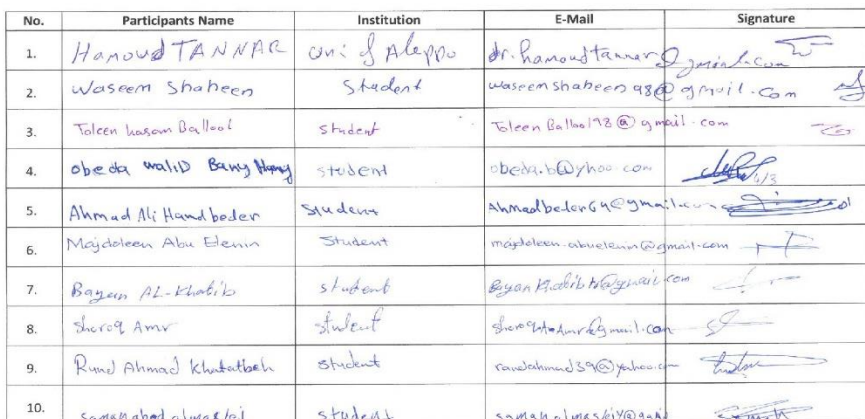 No. Participants Name Institution E-Mail Signature
1. Hamoud TANNAR Uni of Aleppo dr.hamoudtannar@gmail.com
2. Waseem Shaheen Student waseemshaheen98@gmail.com
3. Toleen hasan Ballool student Toleen Ballool98@gmail.com
4. obeda walid Bany Hany student obeda.b@yhoo.com
5. Ahmad Ali Hamdbeder student Ahmedbeder64@gmail.com
6. Majdoleen Abu Elenin Student majdoleen-abuelenin@gmail.com
7. Bayan AL-Khatib student
8. Shoroq Amr student
9. Rund Ahmad Khatatbeh student randahmd39@yahoo.com
10. student